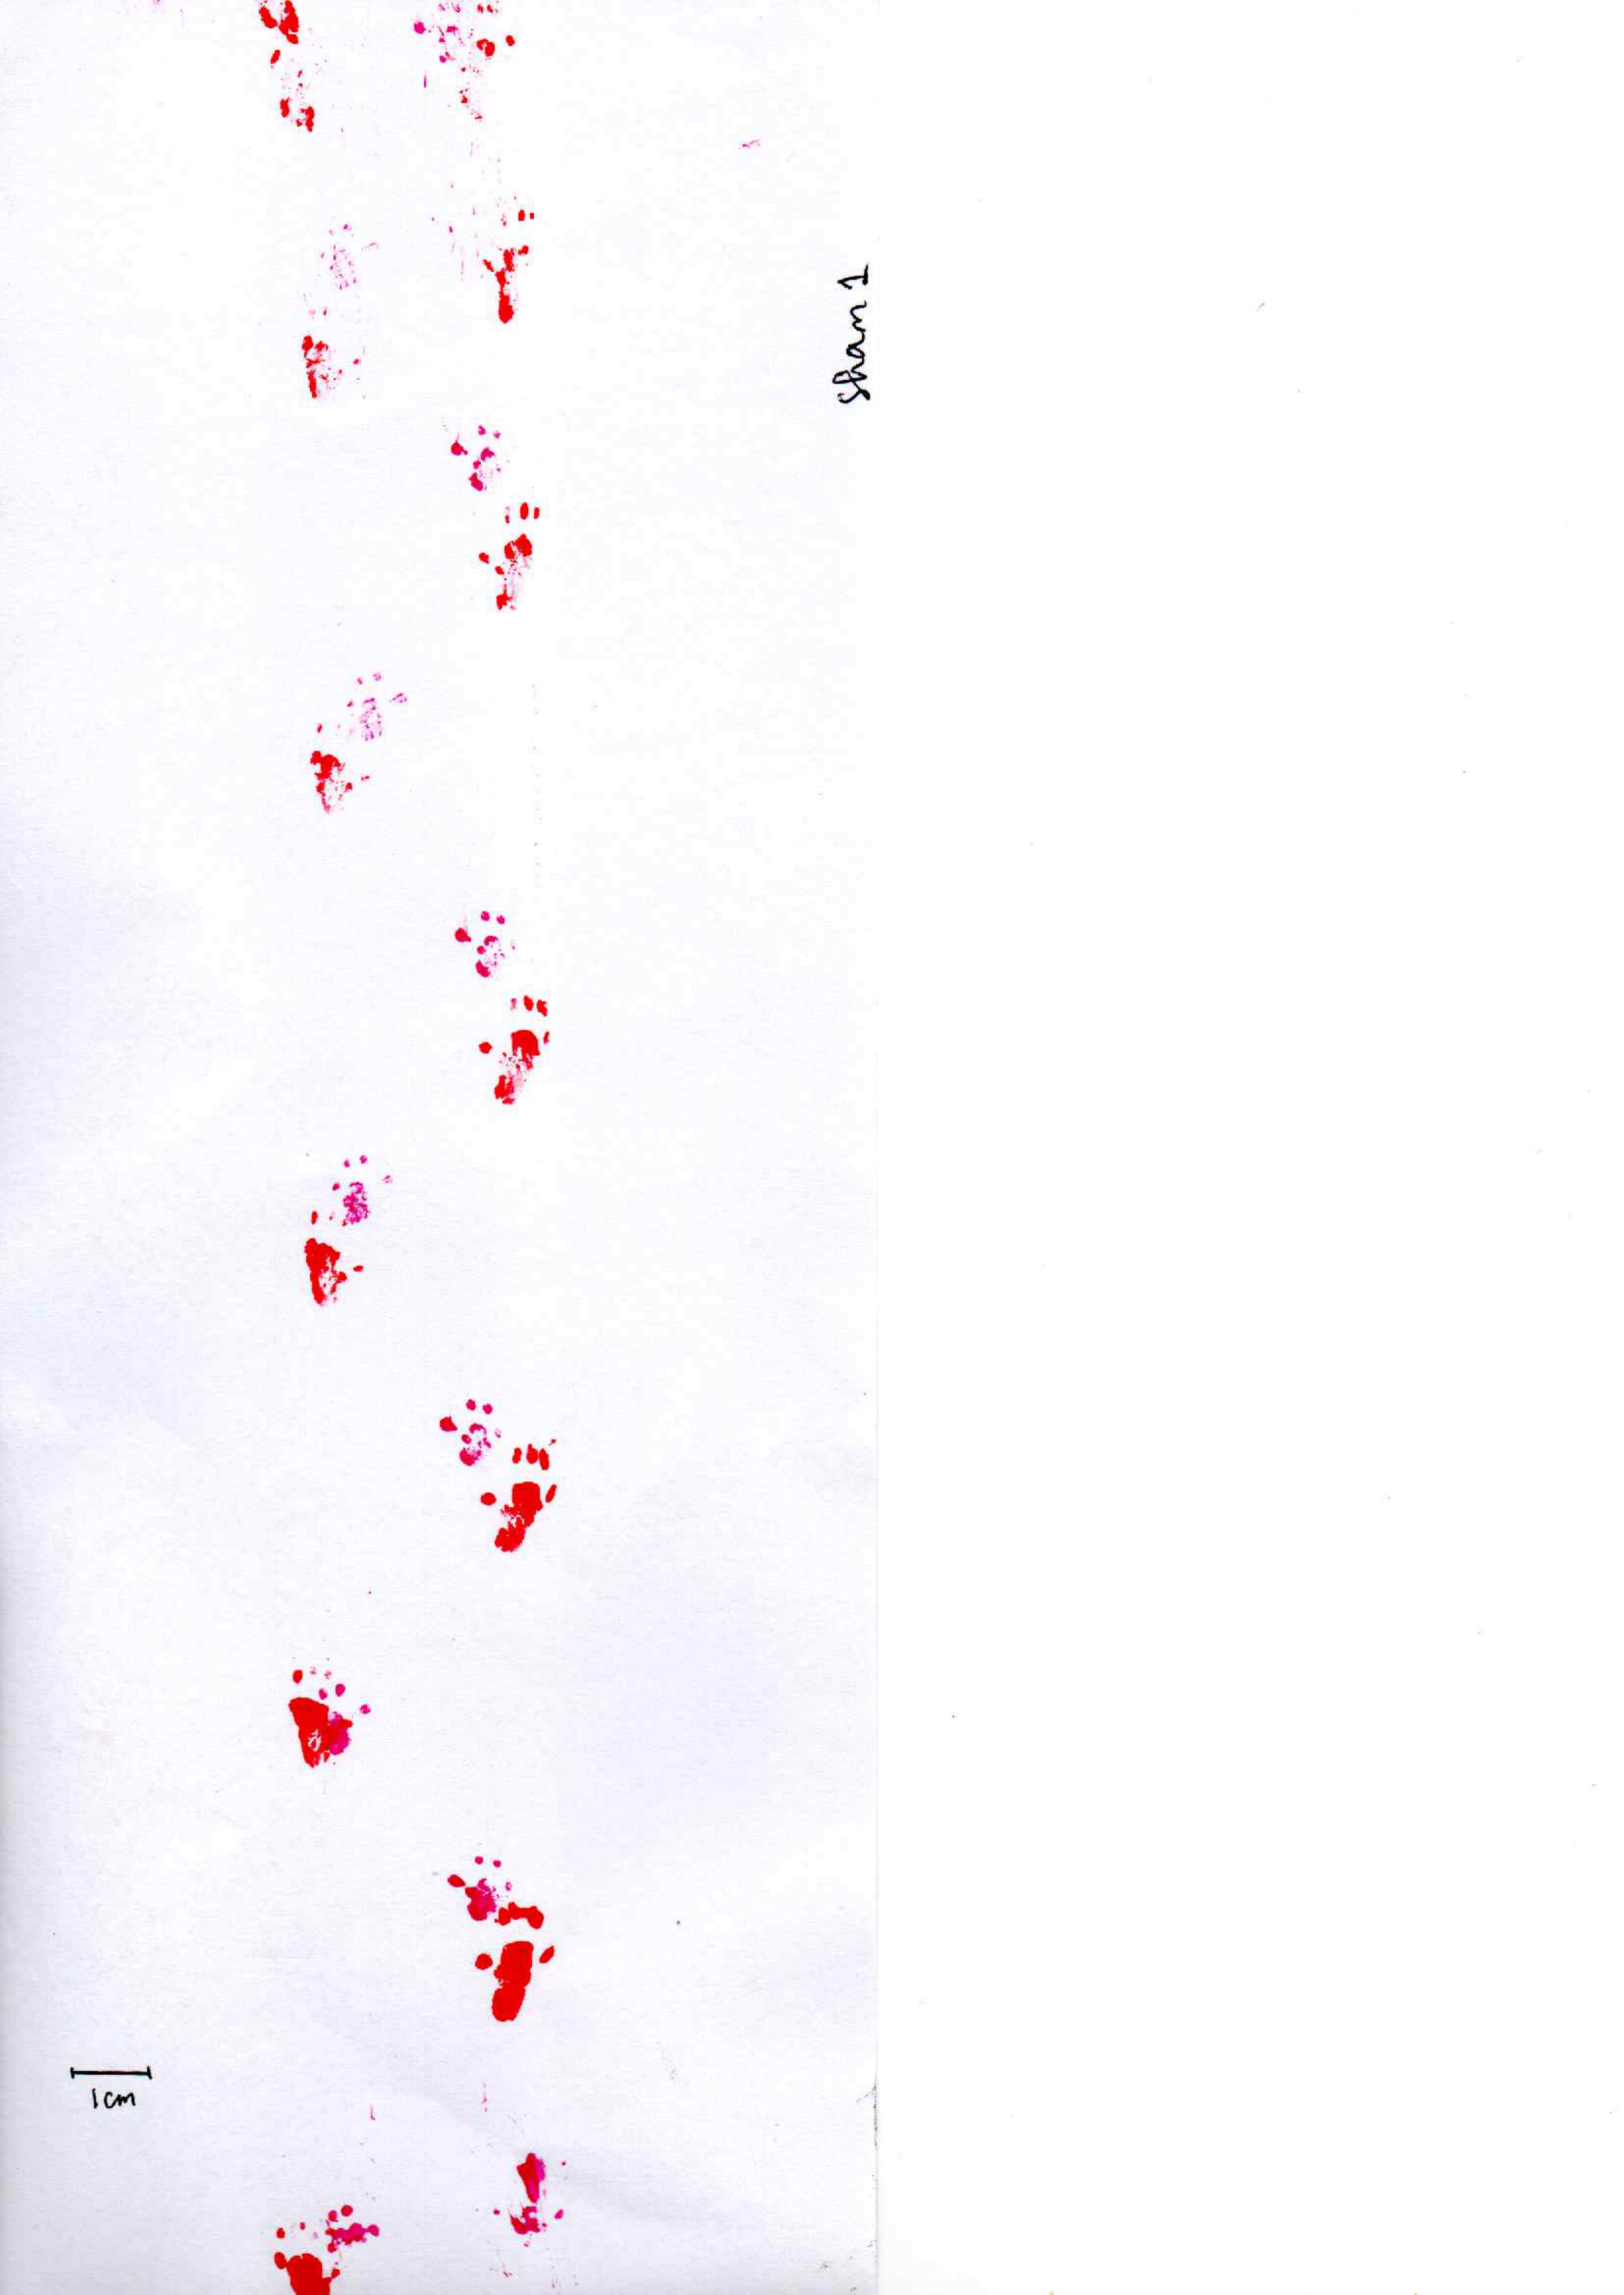 Sham 1
1cm